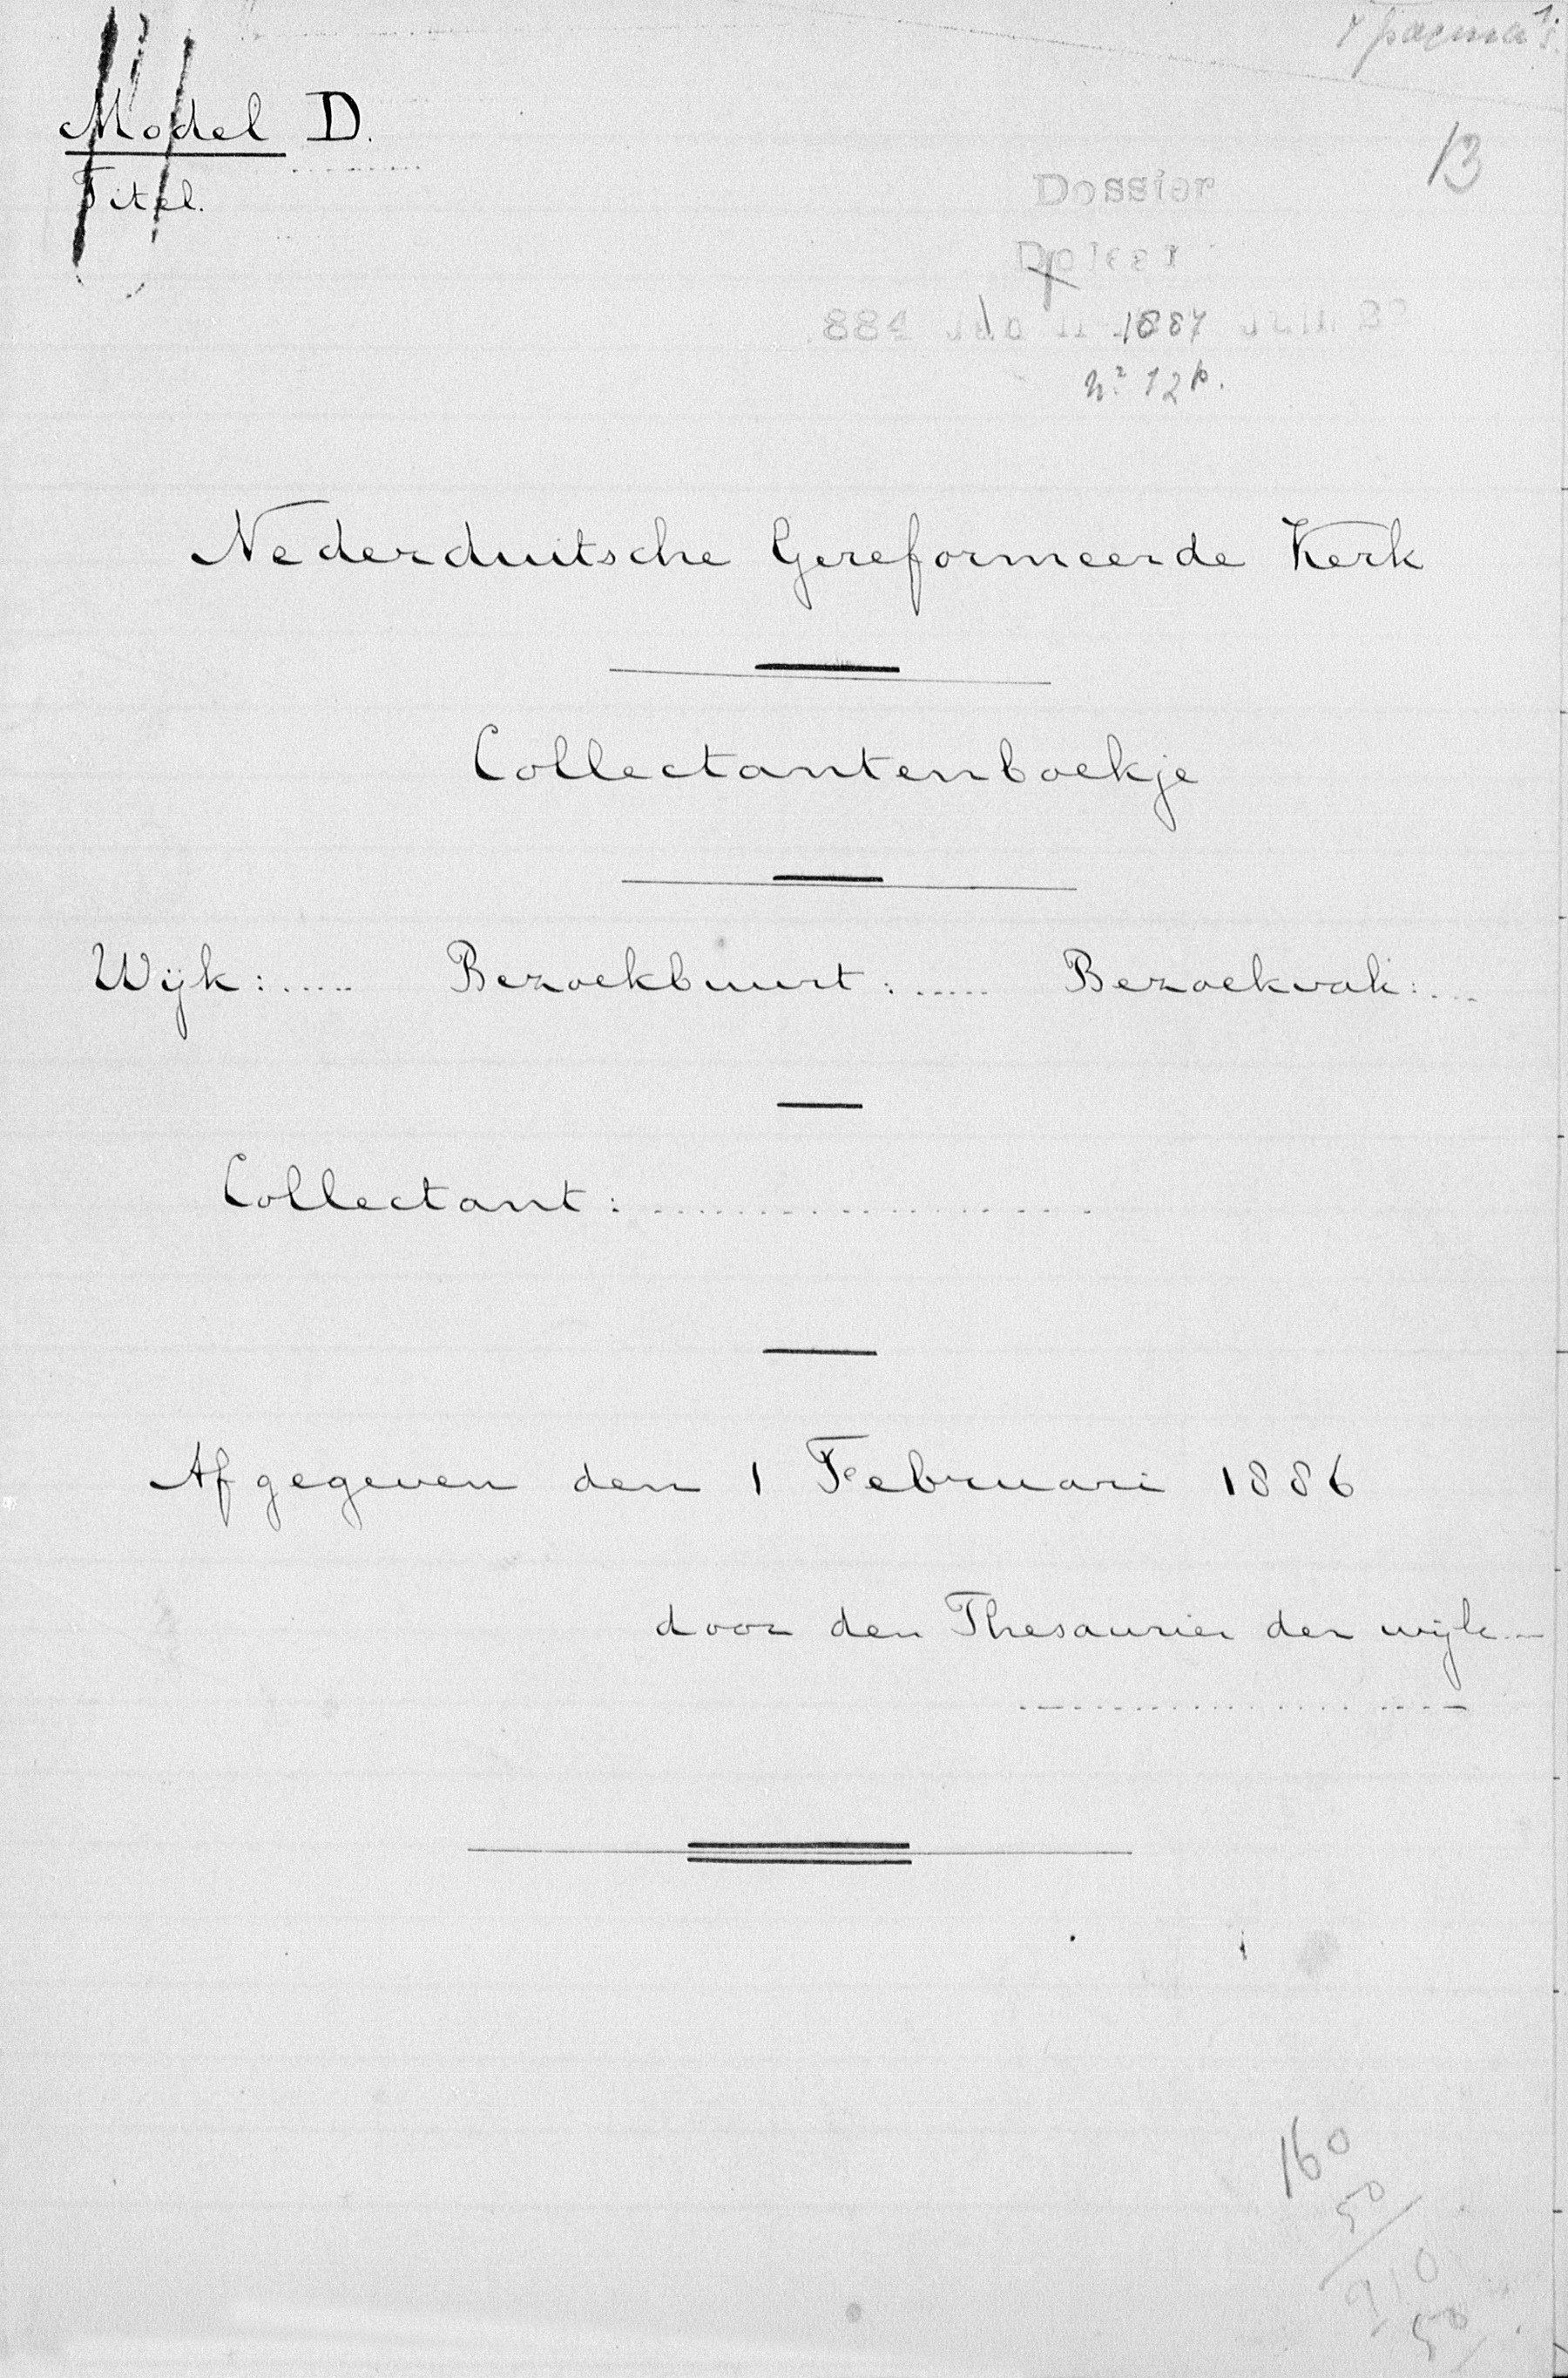 pagina's
Model D.
Titel.
13
Dossier
1887
No 12b.
Nederduitsche Gereformeerde Kerk
Collectantenboekje
Wijk: ..... Bezoekbuurt: ..... Bezoekvak: ....
Collectant: ..................
Afgegeven den 1 Februari 1886
door den Thesaurier der wijk ...
..................
160
50
210
50